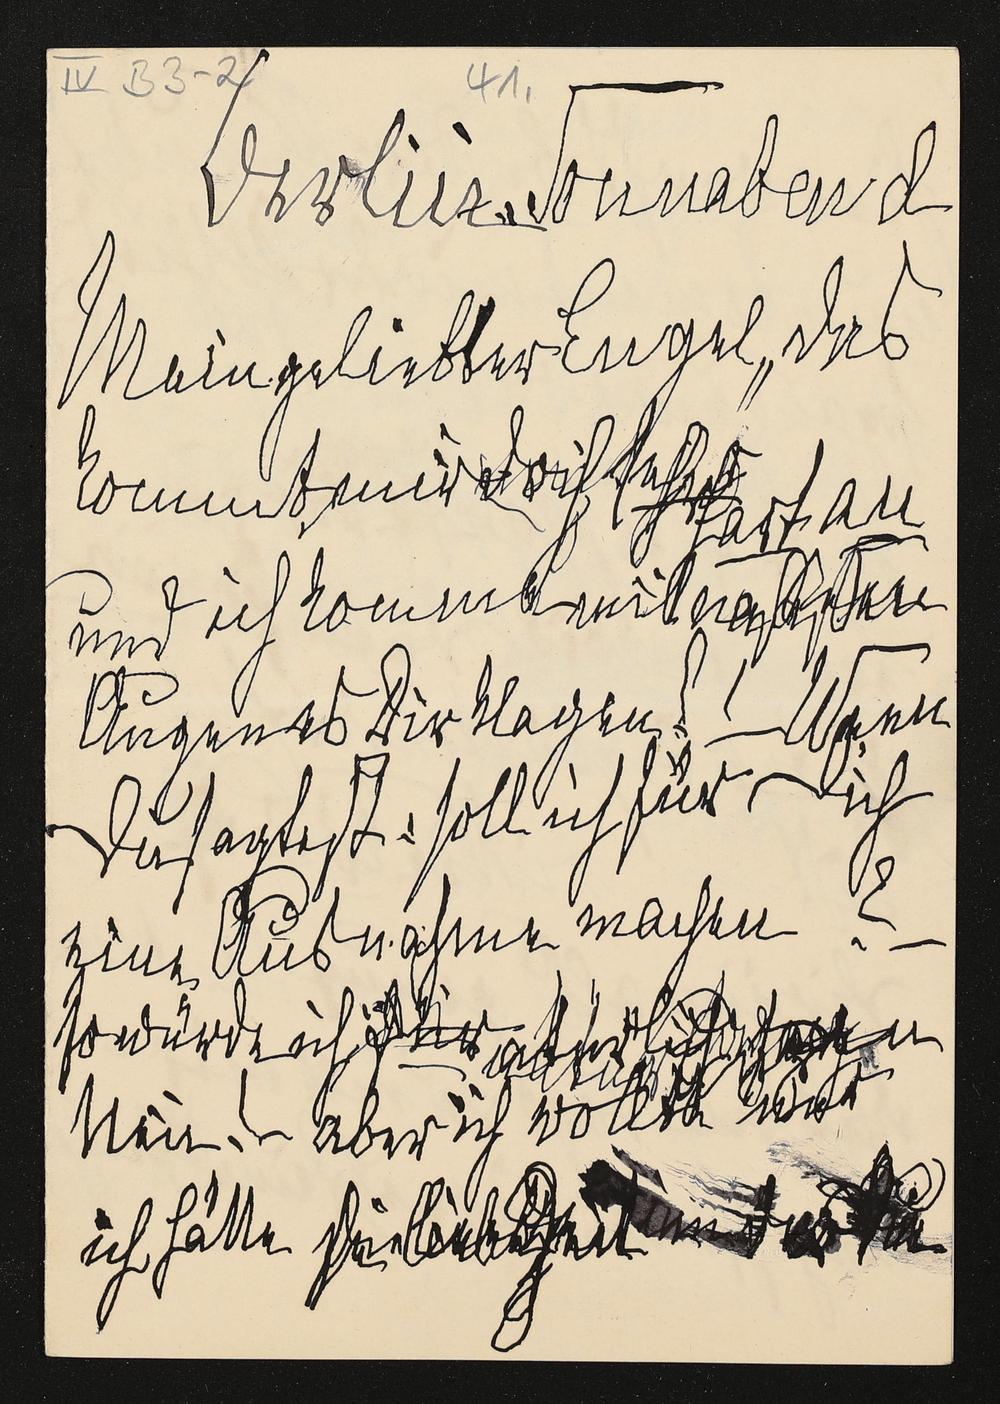 IV B 3-2
41.
Berlin. Sonnabend
Mein geliebter Engel, das
kommt mir doch sehr
hart an
und ich komme mit nassen
Augen es Dir klagen! ! Wenn
Du sagtest: soll ich für Dich
eine Ausnahme machen ? –
so würde ich Dir natürlich sagen
Nein! – aber ich wollte nur
ich hätte die